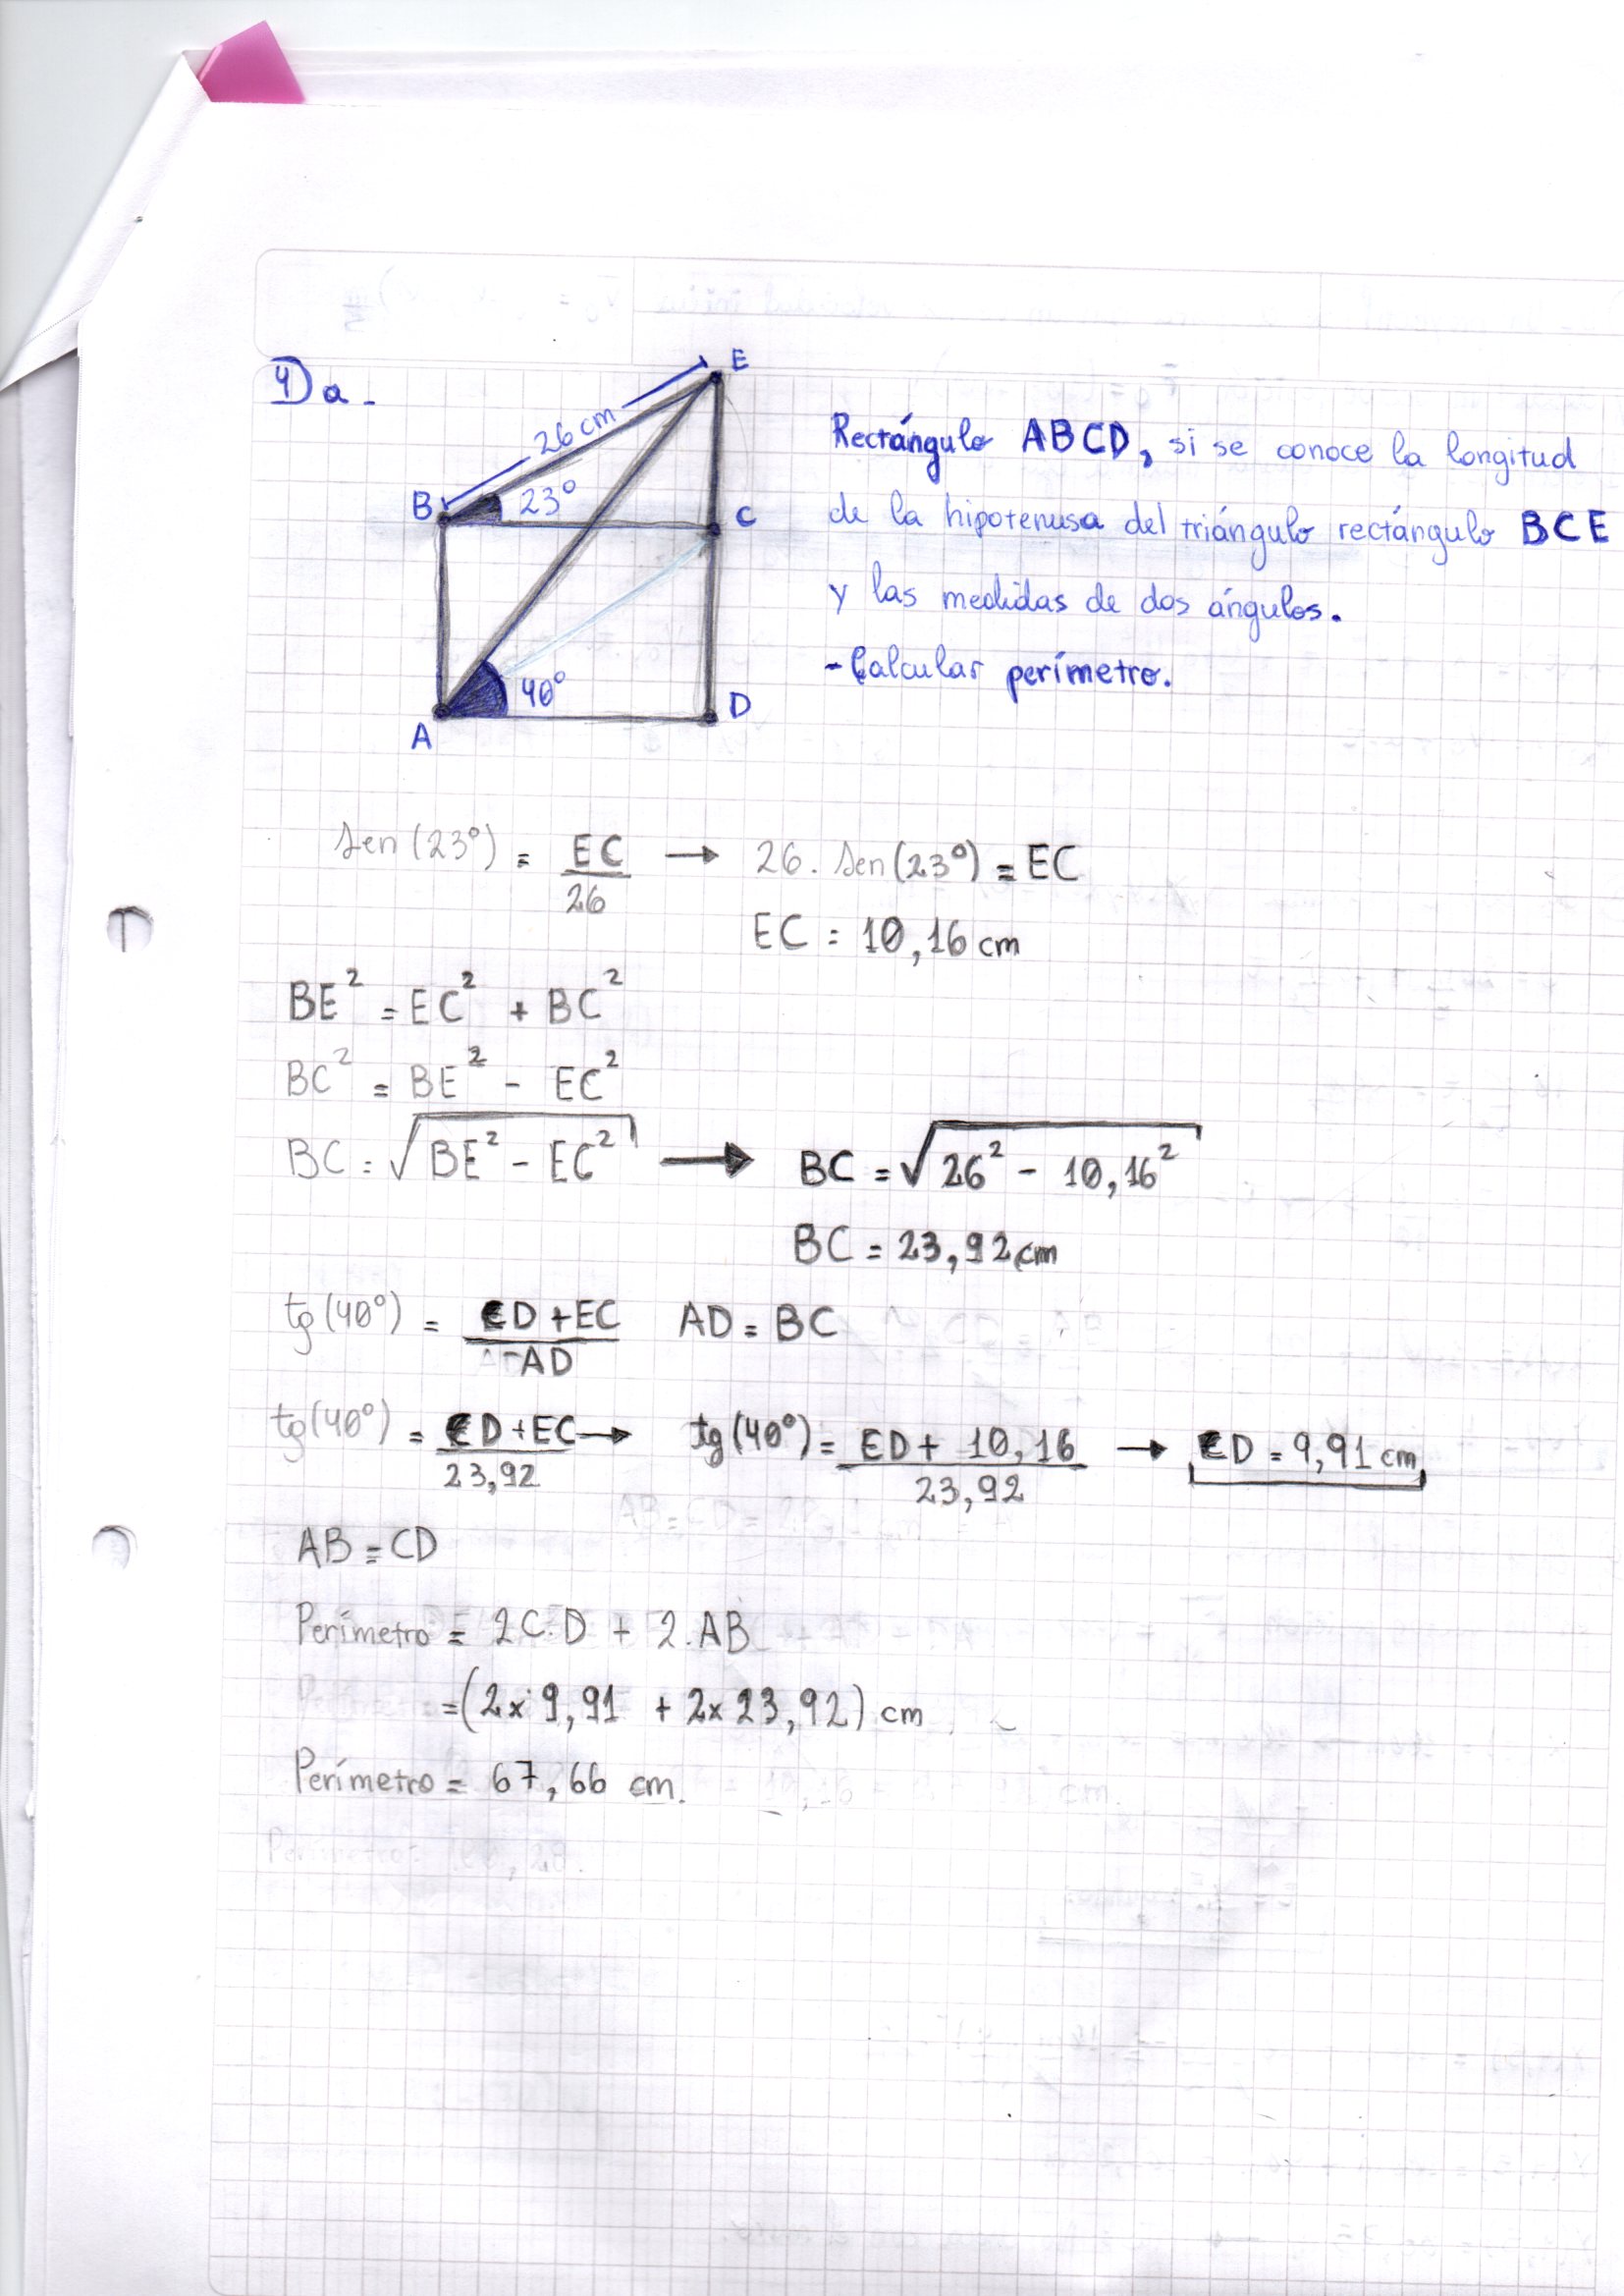 4) a.
E
26 cm
B
23°
C
40°
A
D
Rectángulo ABCD, si se conoce la longitud
de la hipotenusa del triángulo rectángulo BCE
y las medidas de dos ángulos.
- Calcular perímetro.
Sen (23°) = EC / 26 → 26 . Sen (23°) = EC
EC = 10,16 cm
BE² = EC² + BC²
BC² = BE² - EC²
BC = √(BE² - EC²) → BC = √(26² - 10,16²)
BC = 23,92 cm
tg (40°) = CD + EC / AD   AD = BC
tg (40°) = CD + EC / 23,92 → tg (40°) = CD + 10,16 / 23,92 → CD = 9,91 cm
AB = CD
Perímetro = 2 C.D + 2.AB
= (2x 9,91 + 2x 23,92) cm
Perímetro = 67,66 cm.